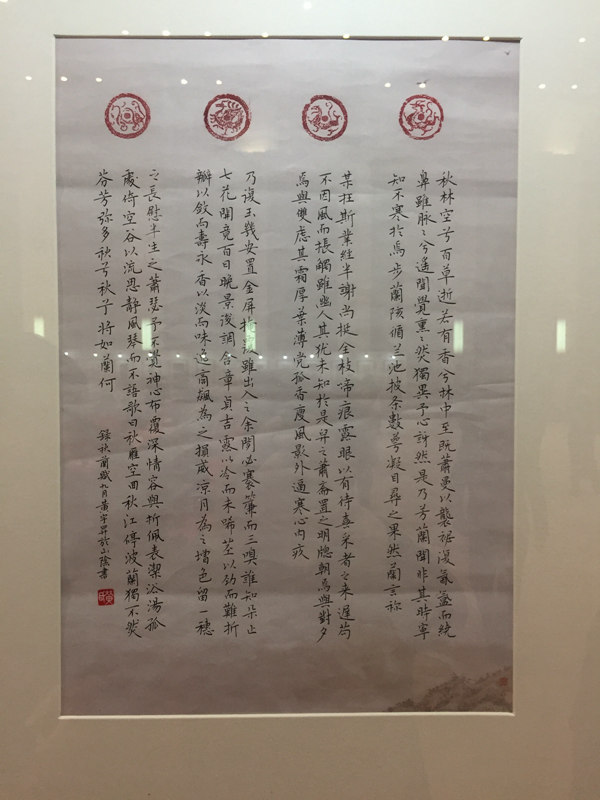 秋林空兮百草逝若有香兮林中至既蕭曼以襲裾復氤氳而繞
鼻雖脉々兮遙聞覺熏々然獨異予心訝然是乃芳蘭開非其時寧
知不寒於焉步蘭陔循兰池披条數萼凝目尋之果然蘭言称
某在斯業經半謝尚挺全枝啼痕露眼以有待喜采者之来遲苟
不因風而棖觸雖幽人其犹未知於是舁之蕭齋置之明牕朝焉與對夕
焉與雙慮其霜厚葉薄党孤香瘦風影外逼寒心内疚
乃復玉幾安置金屏掩覆雖出入之余閑必褰簾而三嗅誰知朵止
七花開竟百日晚景後調含章貞吉露以冷而未晞茎以勁而難折
瓣以斂而壽永香以淡而味逸商飆為之損威凉月為之增色留一穗
之長慰半生之蕭瑟予不覺神心布覆深情容與析佩表潔浴湯孤
處倚空谷以流思靜風琴而不語歌曰秋雁空回秋江停波蘭獨不然
芬芳弥多秋兮秋兮将如蘭何
錄秋蘭賦九月黄宇昇於山陰書